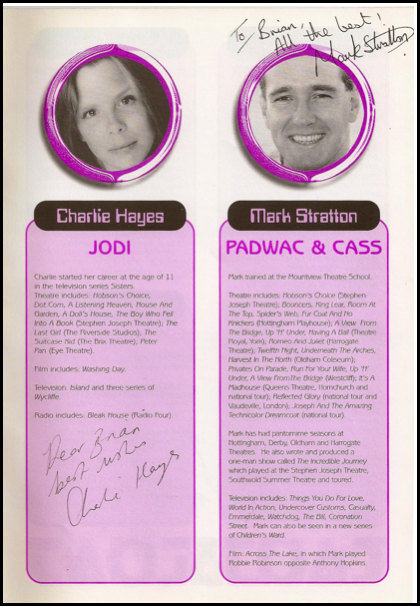 To Brian,
All the best!
Mark Stratton
Charlie Hayes
JODI
Charlie started her career at the age of 11
in the television series Sisters.
Theatre includes: Hobson's Choice,
Dot Com, A Listening Heaven, House And
Garden, A Doll's House, The Boy Who Fell
Into A Book (Stephen Joseph Theatre); The
Last Girl (The Riverside Studios); The
Suitcase Kid (The Brix Theatre); Peter
Pan (Eye Theatre).
Film includes: Washing Day.
Television: Island and three series of
Wycliffe.
Radio includes: Bleak House (Radio Four).
Dear Brian
best wishes
Charlie Hayes
Mark Stratton
PADWAC & CASS
Mark trained at the Mountview Theatre School.
Theatre includes: Hobson's Choice (Stephen
Joseph Theatre); Bouncers, King Lear, Room At
The Top, Spider's Web, Fur Coat And No
Knickers (Nottingham Playhouse); A View From
The Bridge, Up 'N' Under, Having A Ball (Theatre
Royal, York); Romeo And Juliet (Harrogate
Theatre); Twelfth Night, Underneath The Arches,
Harvest In The North (Oldham Coliseum);
Privates On Parade, Run For Your Wife, Up 'N'
Under, A View From The Bridge (Westcliff); It's A
Madhouse (Queens Theatre, Hornchurch and
national tour); Reflected Glory (national tour and
Vaudeville, London); Joseph And The Amazing
Technicolor Dreamcoat (national tour).
Mark has had pantomime seasons at
Nottingham, Derby, Oldham and Harrogate
Theatres. He also wrote and produced a
one-man show called The Incredible Journey
which played at the Stephen Joseph Theatre,
Southwold Summer Theatre and toured.
Television includes: Things You Do For Love,
World In Action, Undercover Customs, Casualty,
Emmerdale, Watchdog, The Bill, Coronation
Street. Mark can also be seen in a new series
of Children's Ward.
Film: Across The Lake, in which Mark played
Robbie Robinson opposite Anthony Hopkins.